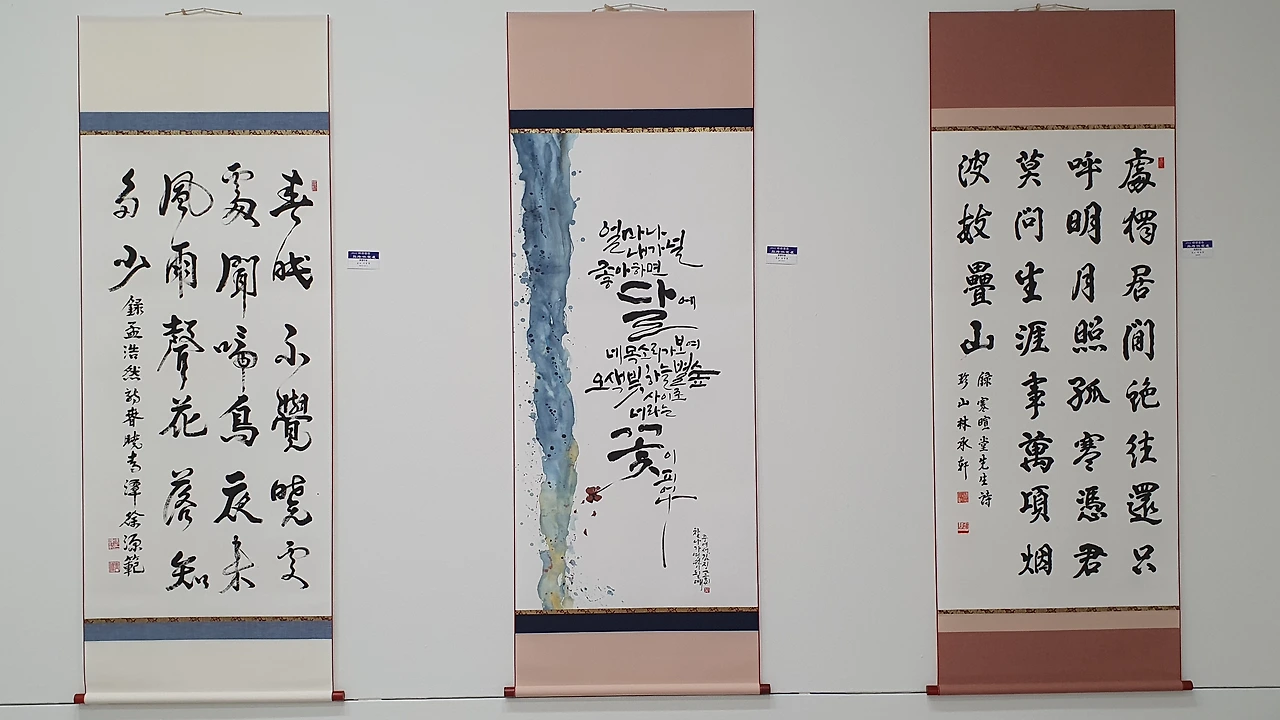 春眠不覺曉處
處聞啼鳥夜來
風雨聲花落知
多少
錄孟浩然詩春曉 靑潭徐源範
얼마나
내가 널
좋아하면
달에
네 목소리가 보여
오색빛 하늘 별숲
사이로
너라는
꽃이 피어
處獨居閒絶往還只
呼明月照孤寒憑君
莫問生涯事萬項烟
波數疊山
錄寒暄堂先生詩
珍山林承軒